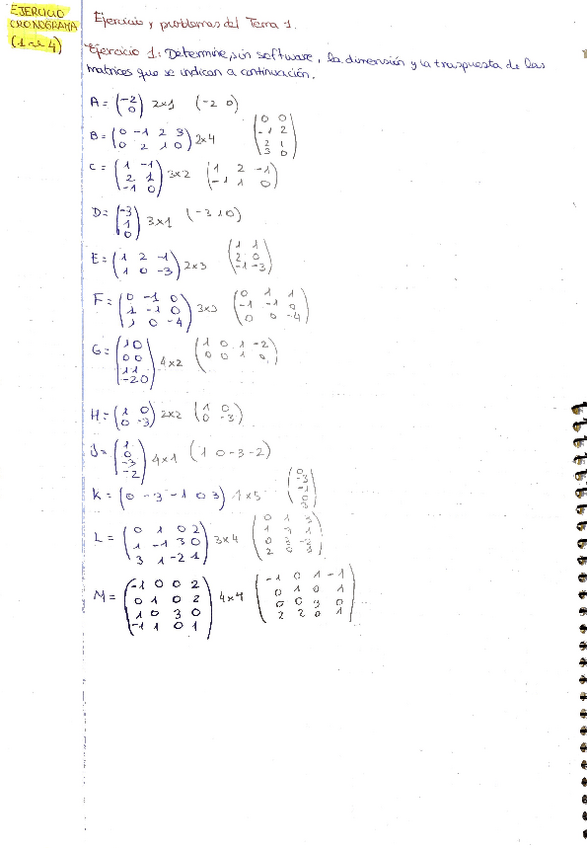 EJERCICIO
CRONOGRAMA
Ejercicio y problemas del Tema 1.
Ejercicio 1: Determine, sin software, la dimensión y la traspuesta de las
matrices que se indican a continuación.
A = (-2
0) 2x1 (-2 0)
B = (0 -1 2 3
0 2 1 0) 2x4 (0 0
-1 2
2 1
3 0)
C = (1 -1
2 1
-1 0) 3x2 (1 2 -1
-1 1 0)
D = (-3
1
0) 3x1 (-3 1 0)
E = (1 2 -1
1 0 -3) 2x3 (1 1
2 0
-1 -3)
F = (0 -1 0
1 -1 0
1 0 -4) 3x3 (0 1 1
-1 -1 0
0 0 -4)
G = (1 0
0 0
1 1
-2 0) 4x2 (1 0 1 -2
0 0 1 0)
H = (1 0
0 -3) 2x2 (1 0
0 -3)
J = (1
0
-3
-2) 4x1 (1 0 -3 -2)
K = (0 -3 -1 0 3) 1x5
L = (0 1 0 2
1 -1 3 0
3 1 -2 1) 3x4
M = (-1 0 0 2
0 1 0 2
1 0 3 0
-1 1 0 1) 4x4 (-1 0 1 -1
0 1 0 1
0 0 3 0
2 2 0 1)